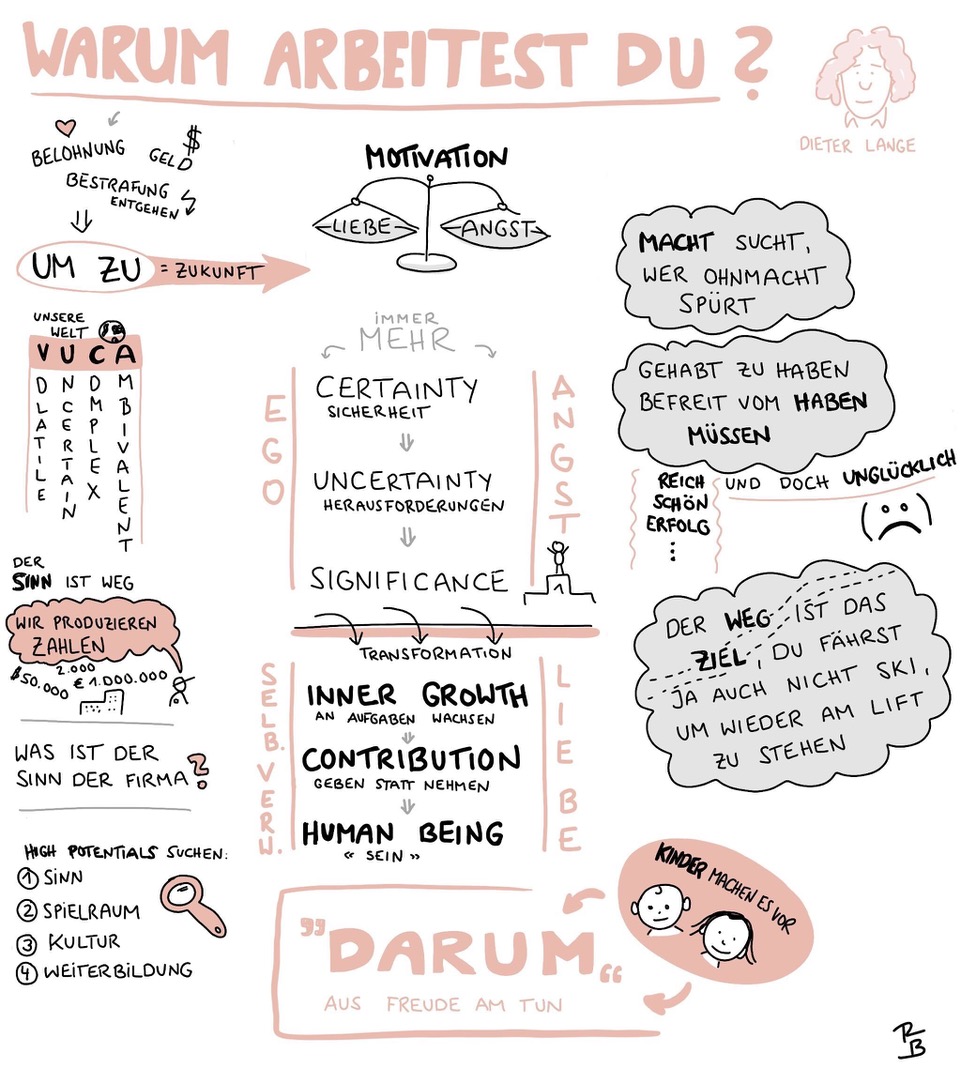 WARUM ARBEITEST DU?
DIETER LANGE
BELOHNUNG
GELD
$
BESTRAFUNG
ENTGEHEN
UM ZU = ZUKUNFT
MOTIVATION
LIEBE
ANGST
UNSERE
WELT
VUCA
VOLATILE
UNCERTAIN
COMPLEX
AMBIVALENT
DER
SINN IST WEG
WIR PRODUZIEREN
ZAHLEN
$50.000
2.000
€1.000.000
WAS IST DER
SINN DER FIRMA?
HIGH POTENTIALS SUCHEN:
1 SINN
2 SPIELRAUM
3 KULTUR
4 WEITERBILDUNG
IMMER
MEHR
EGO
ANGST
CERTAINTY
SICHERHEIT
UNCERTAINTY
HERAUSFORDERUNGEN
SIGNIFICANCE
1
TRANSFORMATION
SELB.VERW.
LIEBE
INNER GROWTH
AN AUFGABEN WACHSEN
CONTRIBUTION
GEBEN STATT NEHMEN
HUMAN BEING
"SEIN"
"DARUM"
AUS FREUDE AM TUN
MACHT SUCHT,
WER OHNMACHT
SPÜRT
GEHABT ZU HABEN
BEFREIT VOM HABEN
MÜSSEN
REICH
SCHÖN
ERFOLG
...
UND DOCH UNGLÜCKLICH
DER WEG IST DAS
ZIEL, DU FÄHRST
JA AUCH NICHT SKI,
UM WIEDER AM LIFT
ZU STEHEN
KINDER MACHEN ES VOR
RB